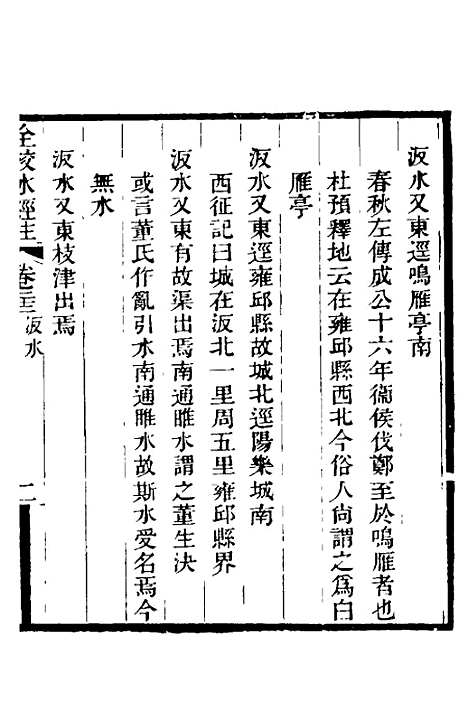 汳水又東逕鳴雁亭南
春秋左傳成公十六年衞侯伐鄭至於鳴雁者也
杜預釋地云在雍邱縣西北今俗人尙謂之爲白
雁亭
汳水又東逕雍邱縣故城北逕陽樂城南
西征記曰城在汳北一里周五里雍邱縣界
汳水又東有故渠出焉南通睢水謂之董生決
或言董氏作亂引水南通睢水故斯水受名焉今
無水
汳水又東枝津出焉
全校水經注 卷二十三 汳水 二